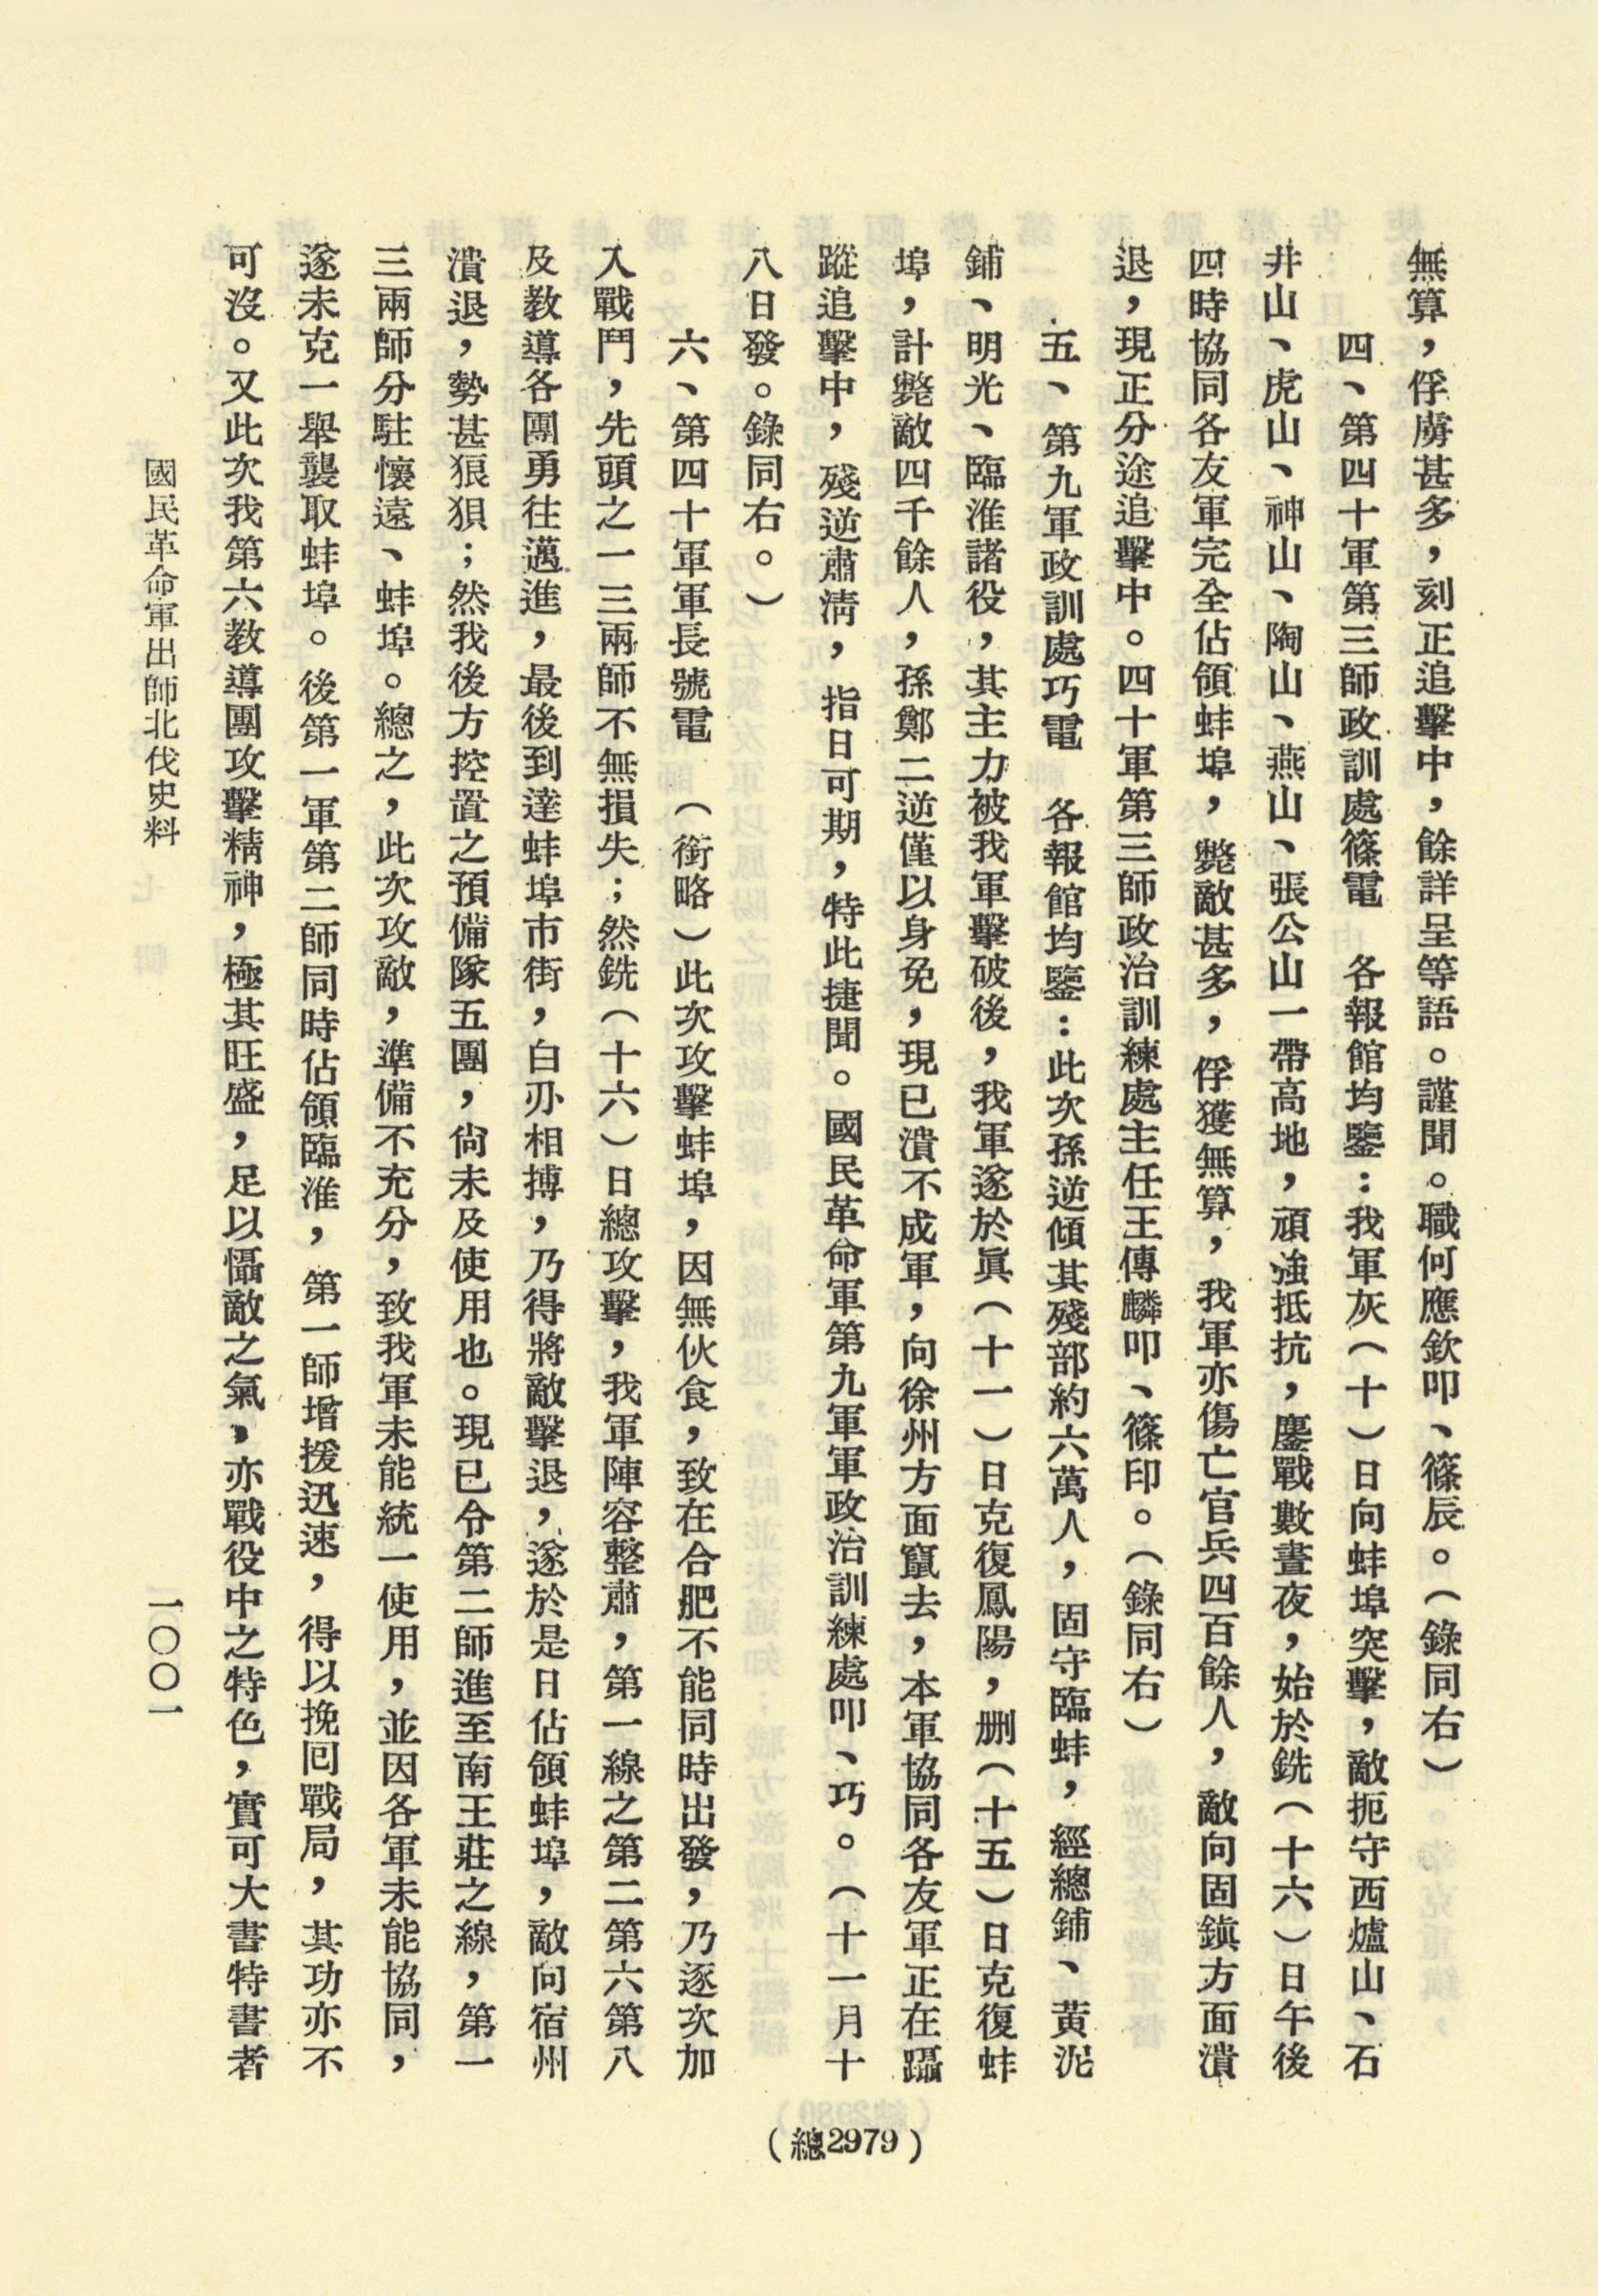 無算，俘虜甚多，刻正追擊中，餘詳呈等語。謹聞。職何應欽叩、篠辰。（錄同右）
四、第四十軍第三師政訓處篠電　各報館均鑒：我軍灰（十）日向蚌埠突擊，敵扼守西爐山、石
井山、虎山、神山、陶山、燕山、張公山一帶高地，頑強抵抗，鏖戰數晝夜，始於銑（十六）日午後
四時協同各友軍完全佔領蚌埠，斃敵甚多，俘獲無算，我軍亦傷亡官兵四百餘人，敵向固鎮方面潰
退，現正分途追擊中。四十軍第三師政治訓練處主任王傳麟叩、篠印。（錄同右）
五、第九軍政訓處巧電　各報館均鑒：此次孫逆傾其殘部約六萬人，固守臨蚌，經總鋪、黃泥
鋪、明光、臨淮諸役，其主力被我軍擊破後，我軍遂於眞（十一）日克復鳳陽，刪（十五）日克復蚌
埠，計斃敵四千餘人，孫鄭二逆僅以身免，現已潰不成軍，向徐州方面竄去，本軍協同各友軍正在躡
蹤追擊中，殘逆肅清，指日可期，特此捷聞。國民革命軍第九軍軍政治訓練處叩、巧。（十一月十
八日發。錄同右。）
六、第四十軍軍長號電　（銜略）此次攻擊蚌埠，因無伙食，致在合肥不能同時出發，乃逐次加
入戰鬥，先頭之一三兩師不無損失；然銑（十六）日總攻擊，我軍陣容整肅，第一線之第二第六第八
及教導各團勇往邁進，最後到達蚌埠市街，白刃相搏，乃得將敵擊退，遂於是日佔領蚌埠，敵向宿州
潰退，勢甚狼狽；然我後方控置之預備隊五團，尙未及使用也。現已令第二師進至南王莊之線，第一
三兩師分駐懷遠、蚌埠。總之，此次攻敵，準備不充分，致我軍未能統一使用，並因各軍未能協同，
遂未克一舉襲取蚌埠。後第一軍第二師同時佔領臨淮，第一師增援迅速，得以挽回戰局，其功亦不
可沒。又此次我第六教導團攻擊精神，極其旺盛，足以懾敵之氣，亦戰役中之特色，實可大書特書者
國民革命軍出師北伐史料
一〇〇一
（總2979）